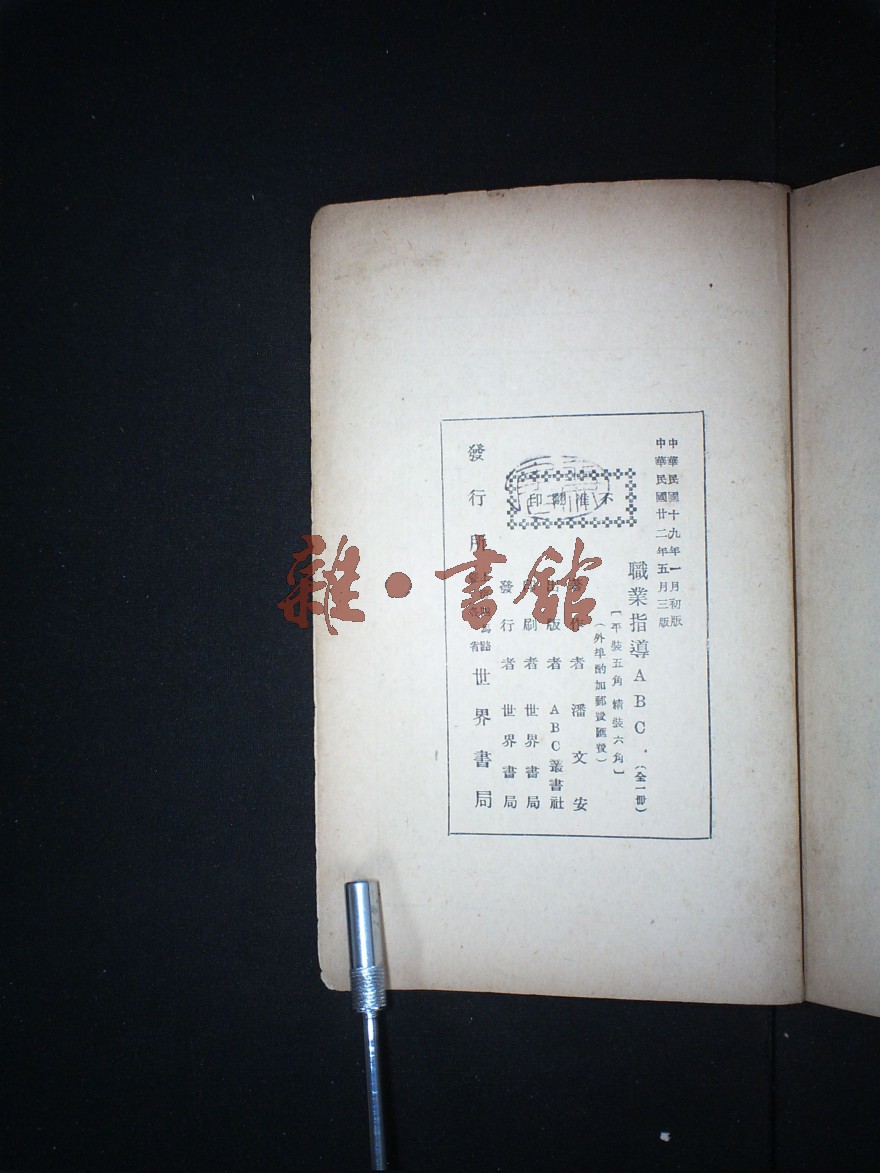 中華民國十九年一月初版
中華民國廿二年五月三版
職業指導ABC.(全一冊)
〔平裝五角 精裝六角〕
(外埠酌加郵費匯費)
不准翻印
著作者 潘文安
出版者 ABC叢書社
印刷者 世界書局
發行者 世界書局
發行所 世界書局
雜·書館